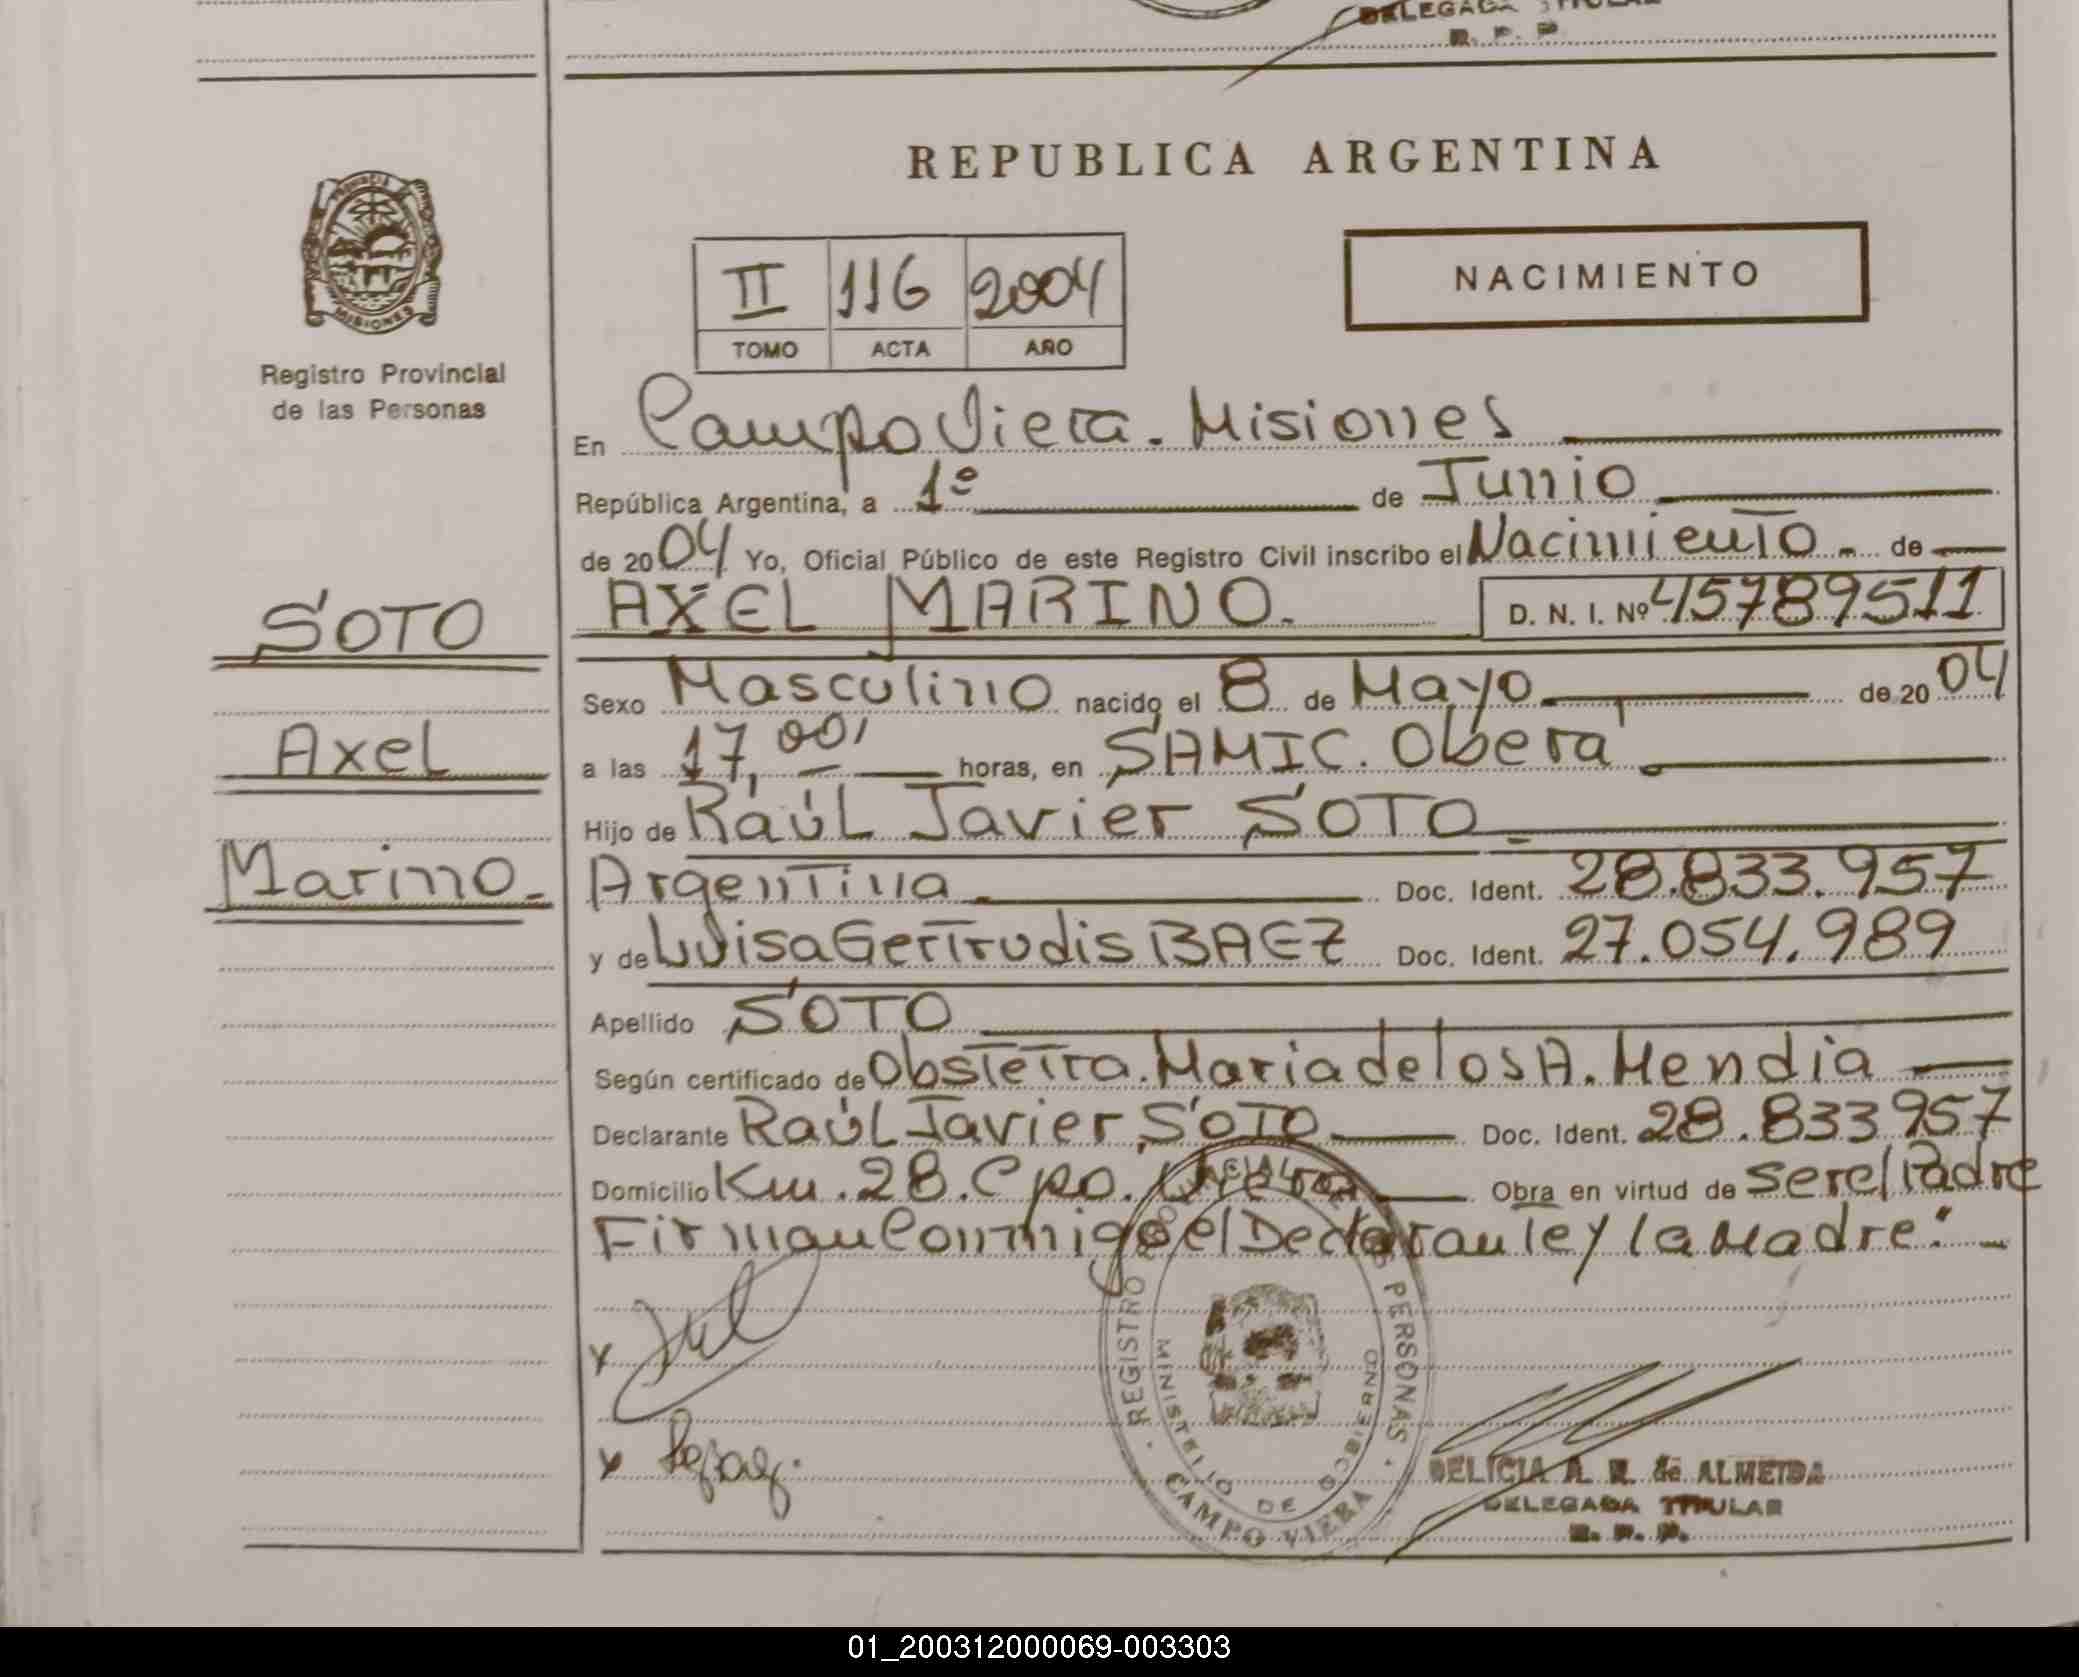 DELEGADA TITULAR
R. P. P.
REPUBLICA ARGENTINA
PROVINCIA
MISIONES
Registro Provincial
de las Personas
II 116 2004
TOMO ACTA AÑO
NACIMIENTO
En Campo Viera. Misiones
República Argentina, a 1º de Junio
de 2004 Yo, Oficial Público de este Registro Civil inscribo el Nacimiento. de
AXEL MARINO. D. N. I. Nº 45789511
SOTO
Axel
Marino.
Sexo Masculino nacido el 8 de Mayo de 2004
a las 17,00' horas, en SAMIC. Oberá
Hijo de Raúl Javier SOTO
Argentina Doc. Ident. 28.833.957
y de Luisa Gertrudis BAEZ Doc. Ident. 27.054.989
Apellido SOTO
Según certificado de Obstetra. Maria de los A. Mendia
Declarante Raúl Javier SOTO Doc. Ident. 28.833957
Domicilio Km. 28. Cpo. Viera Obra en virtud de ser el Padre
Firman Conmigo el Declarante y la Madre:
x
x
REGISTRO PROVINCIAL DE LAS PERSONAS
MINISTERIO DE GOBIERNO
CAMPO VIERA
DELICIA A. R. de ALMEIDA
DELEGADA TITULAR
R. P. P.
01_200312000069-003303